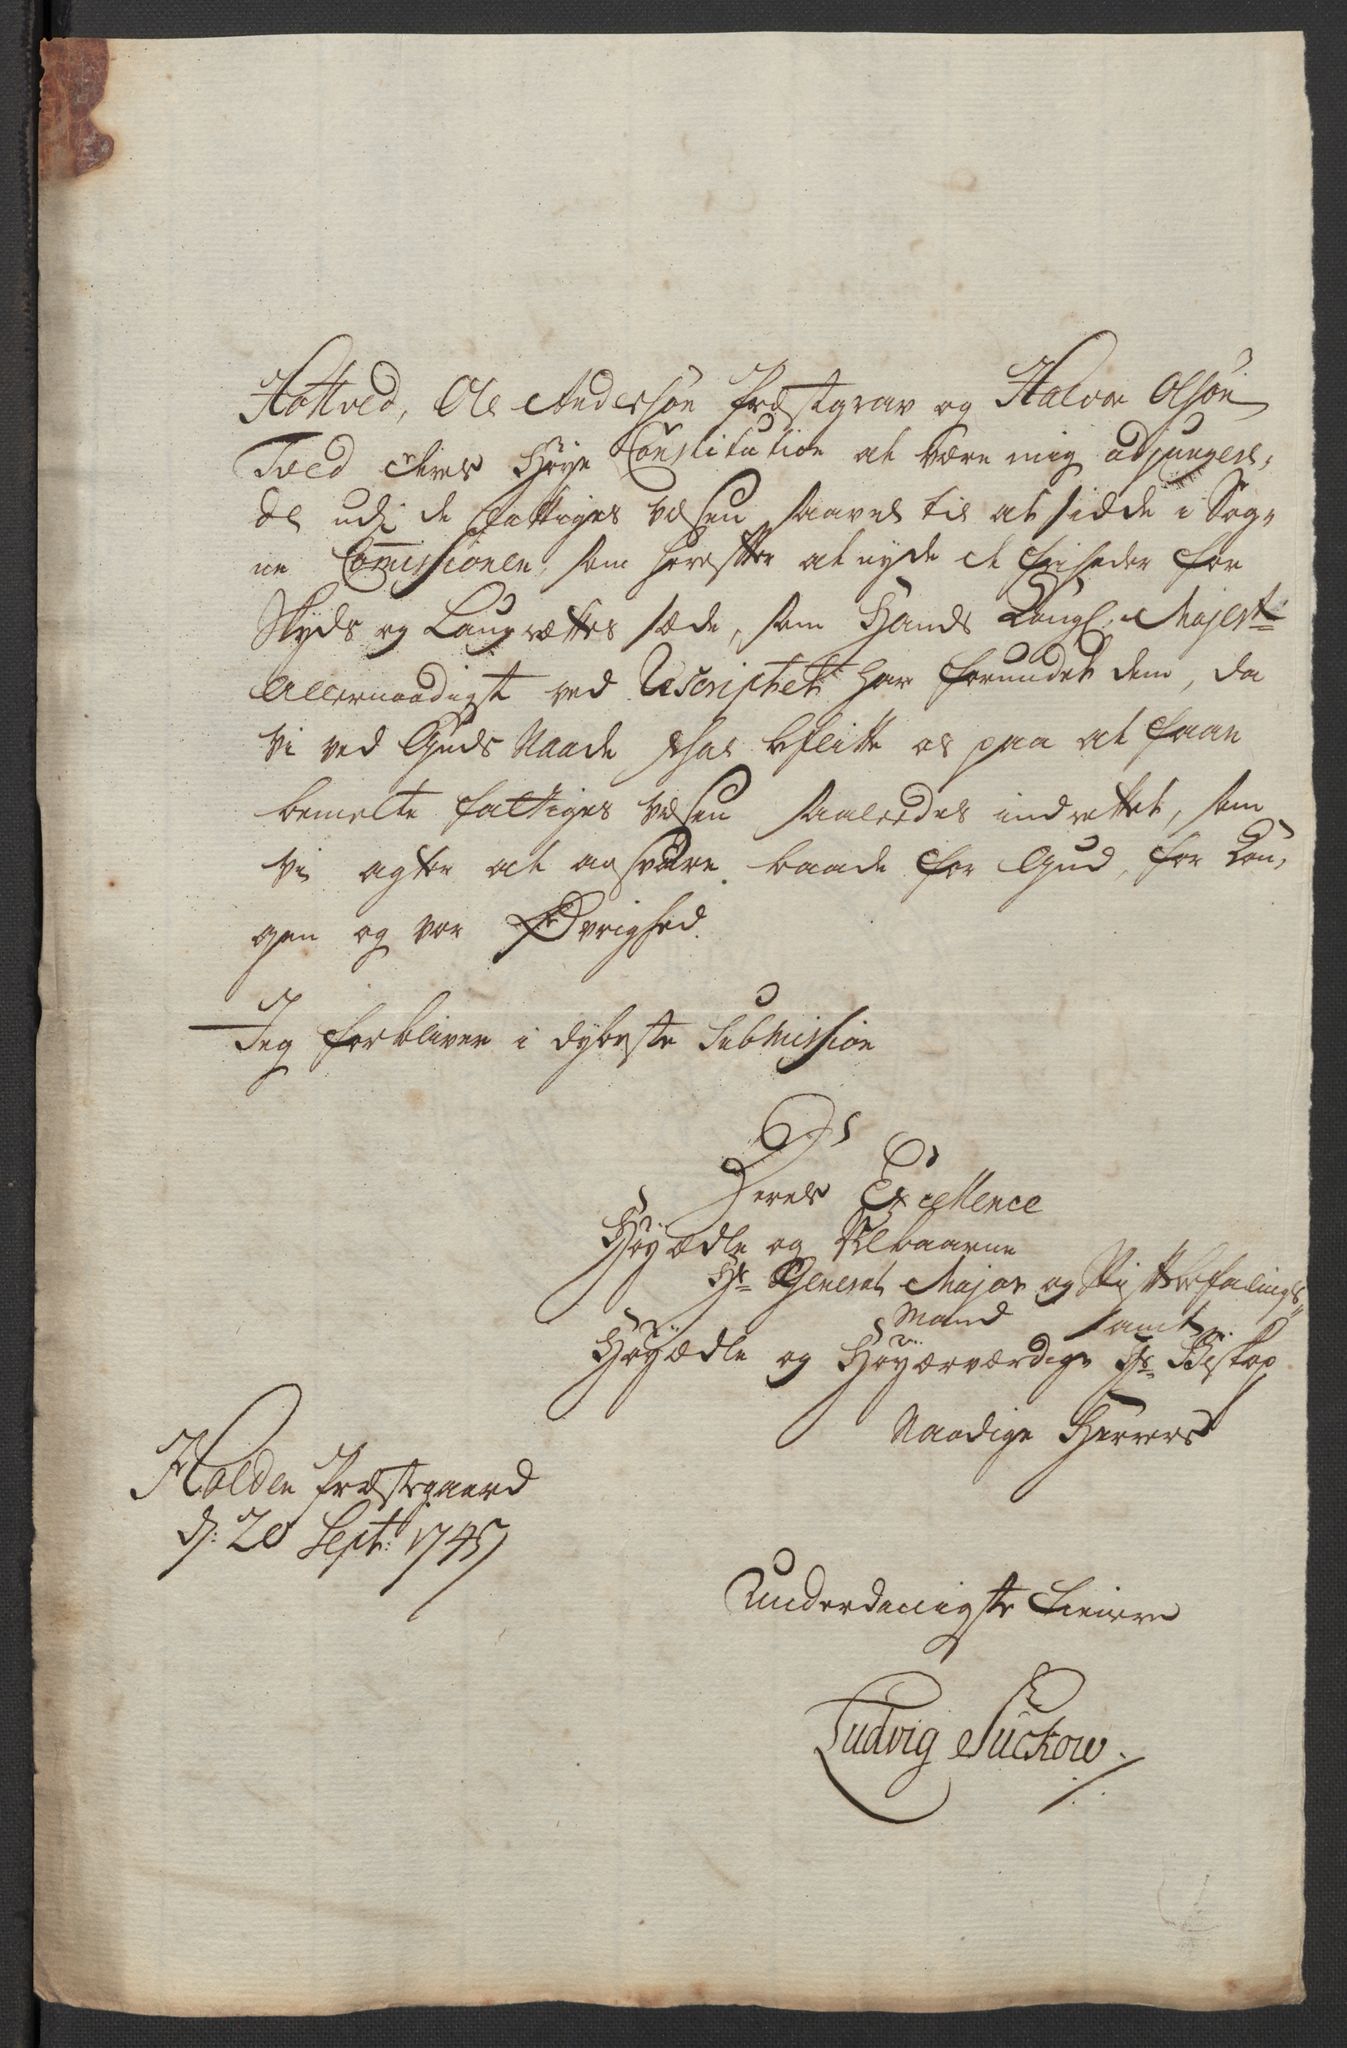 Hottved, Ole Andersøn Præstgrav og Halvor Olsøn
Tved Deres Høye Constitution at være mig adjungere,
de udj de Fattiges Væsen, saavel til at sidde i Sog,
ne Comissionen, som herefter at nyde de friheder for
Skyds og Laugrættes sæde, som Hands Kongl. Majest
Allernaadigst ved Rescriptet har forundet dem, da
Vi ved Guds Naade skal beflitte os paa at faae
bemelte Fattiges Væsen saaledes indrettet, som
Vi agter at ansvare baade for Gud, for Kon,
gen og vor Øvrighed.
Jeg forbliver i dybeste Submission
Deres Excellence
Høyædle og Velbaarne
Hr General Major og Stiftbefalings
Mand samt
Høyædle og Høyærværdige Hr Biskop
Naadige Herrers
Holden Præstegaard
d: 20 Sept: 1745
Underdanigste tienere
Ludvig Suckow.